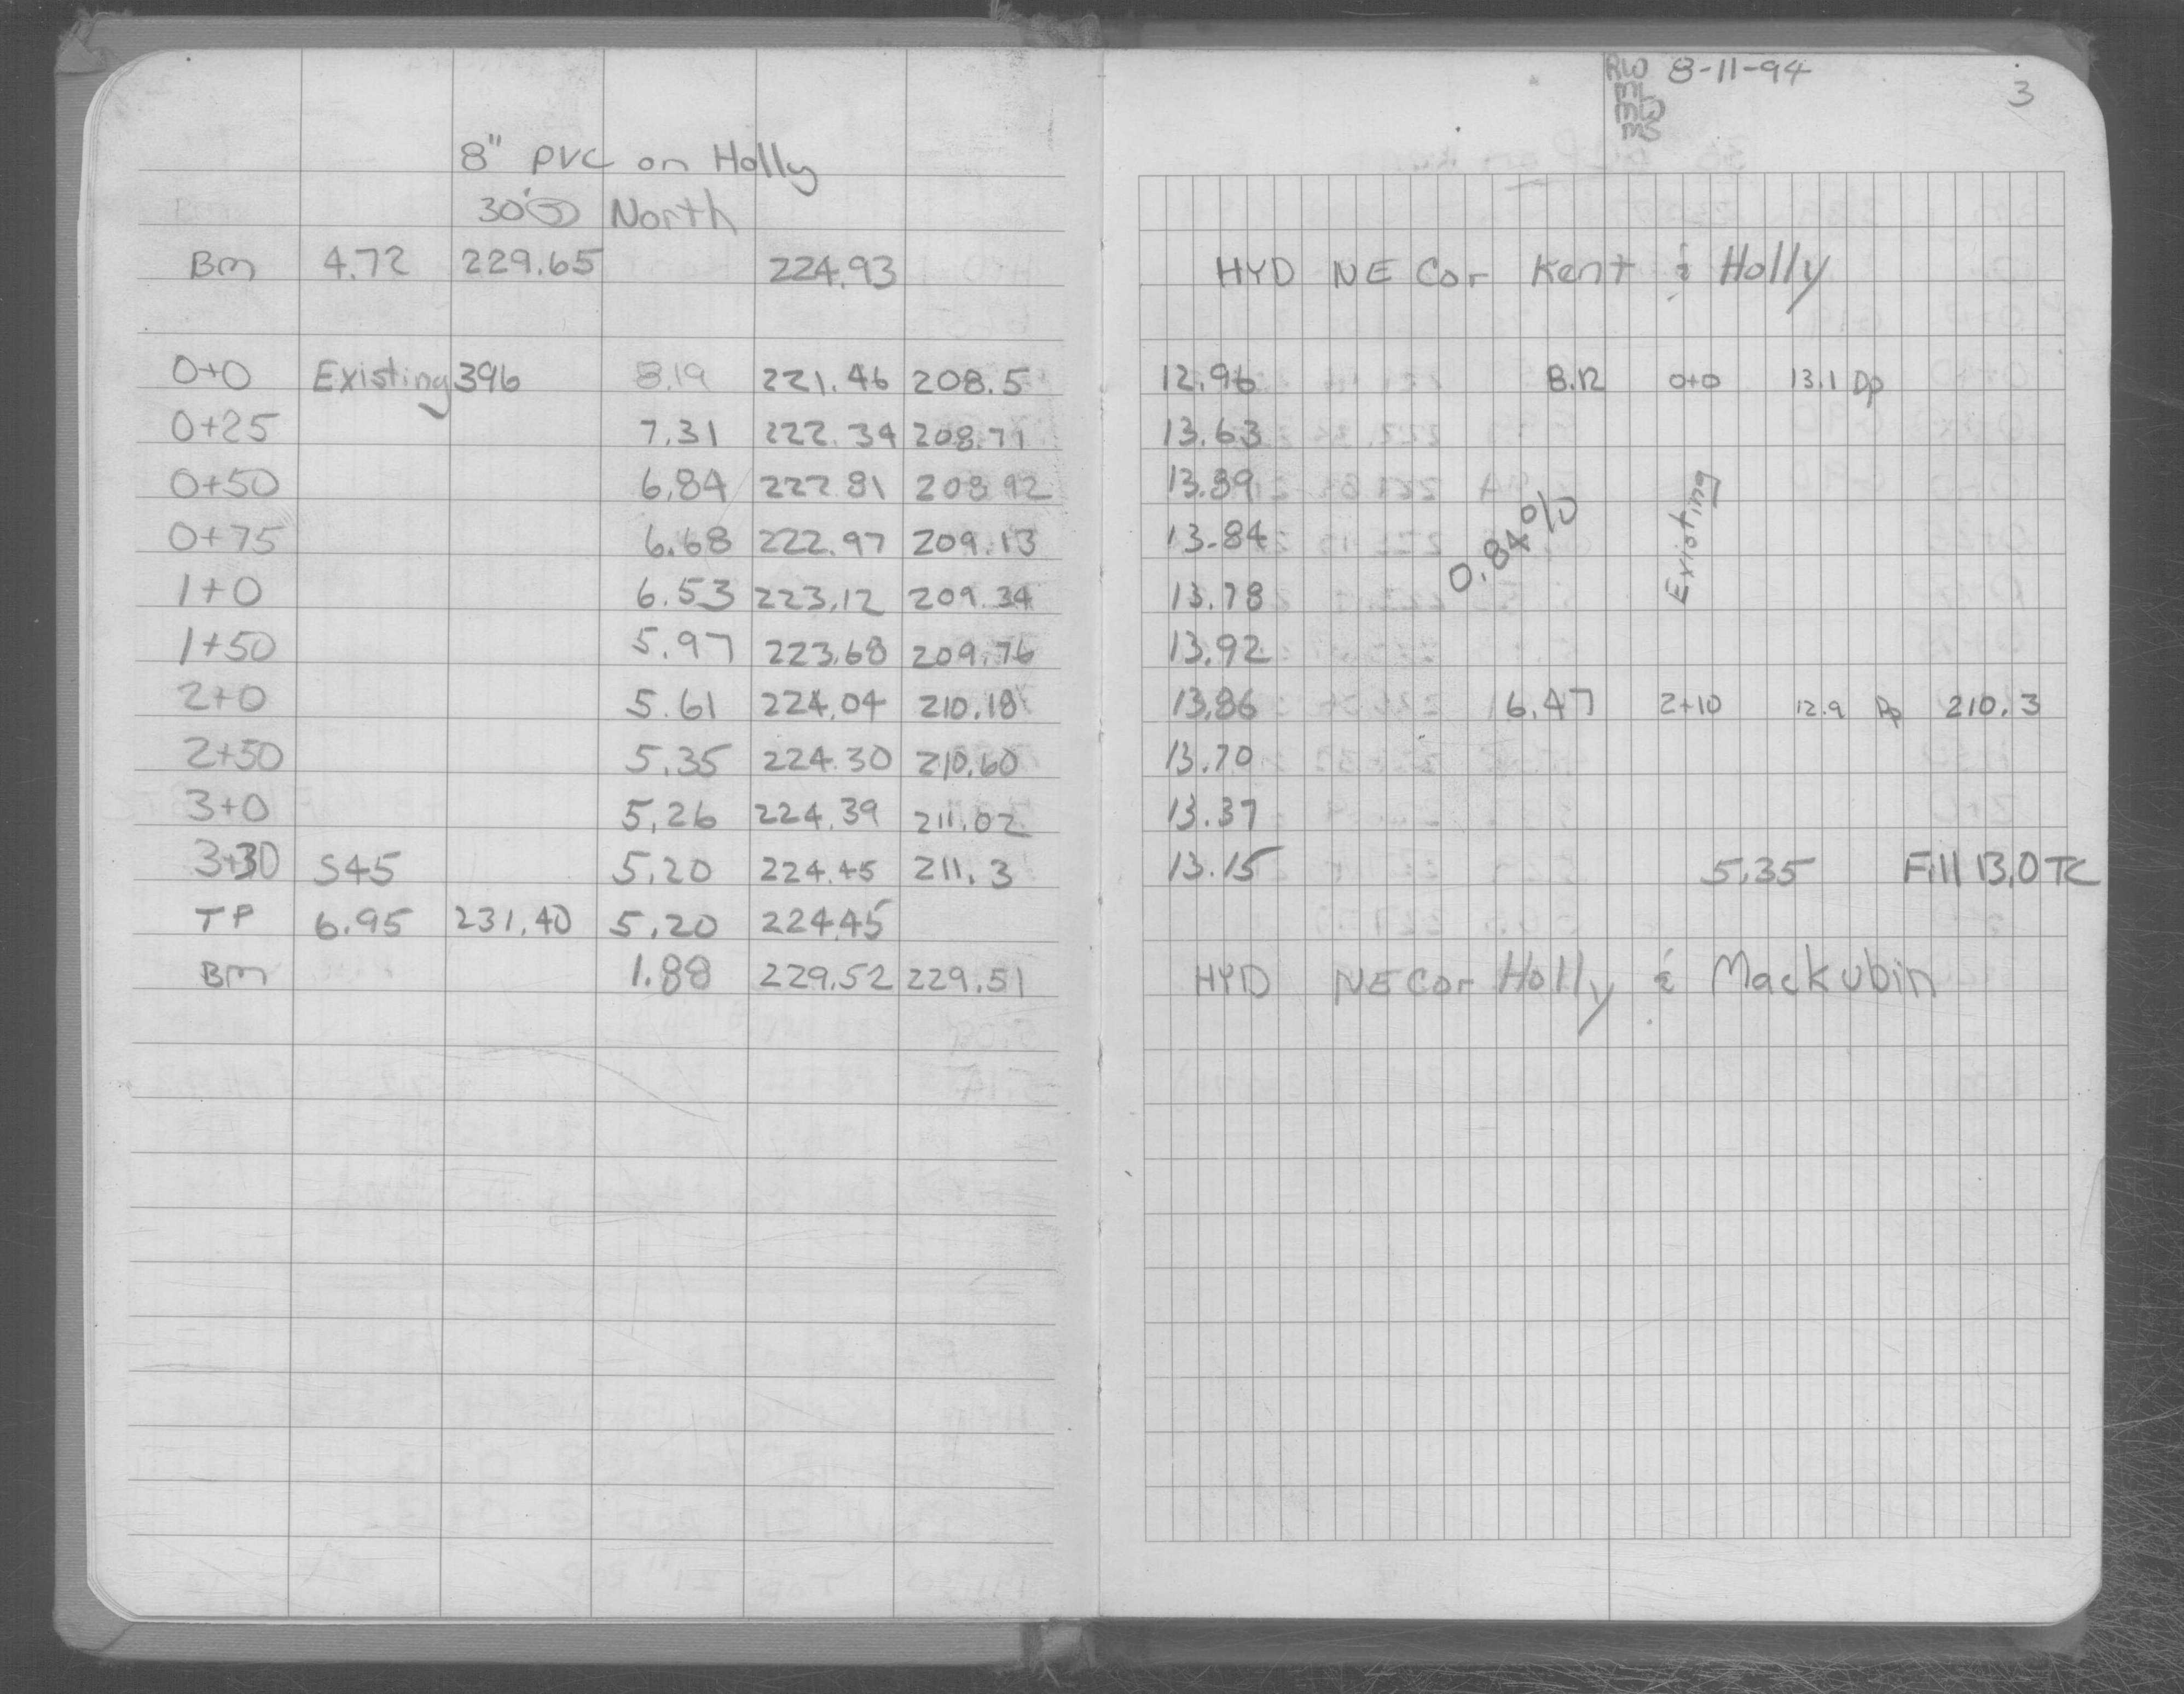 8" PVC on Holly
30' North
Bm 4.72 229.65 224.93
0+0 Existing 396 8.19 221.46 208.5
0+25 7.31 222.34 208.71
0+50 6.84 222.81 208.92
0+75 6.68 222.97 209.13
1+0 6.53 223.12 209.34
1+50 5.97 223.68 209.76
2+0 5.61 224.04 210.18
2+50 5.35 224.30 210.60
3+0 5.26 224.39 211.02
3+30 S45 5.20 224.45 211.3
TP 6.95 231.40 5.20 224.45
Bm 1.88 229.52 229.51
RLO 8-11-94 3
ML
MLO
MS
HYD NE Cor Kent & Holly
12.96 8.12 0+0 13.1 Dp
13.63
13.89
13.84
0.84%
Existing
13.78
13.92
13.86 6.47 2+10 12.9 Dp 210.3
13.70
13.37
13.15 5.35 Fill 13.0 TC
HYD NE Cor Holly & Mackubin